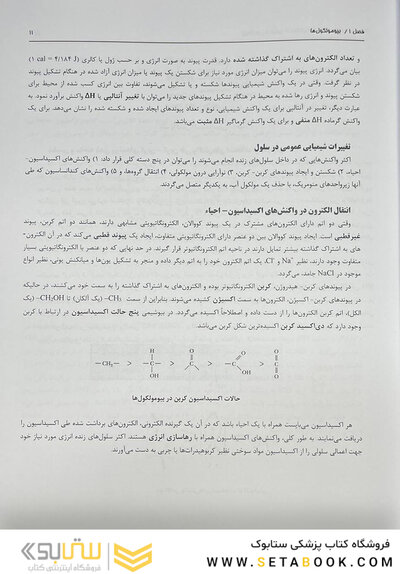 فصل ۱ / بیومولکول‌ها
۱۱
و تعداد الکترون‌های به اشتراک گذاشته شده دارد. قدرت پیوند به صورت انرژی و بر حسب ژول یا کالری (۱ cal = ۴/۱۸۴ J)
بیان می‌گردد. انرژی پیوند را می‌توان میزان انرژی مورد نیاز برای شکستن یک پیوند یا میزان انرژی آزاد شده در هنگام تشکیل پیوند
در نظر گرفت. وقتی در یک واکنش شیمیایی پیوندها شکسته و یا تشکیل می‌شوند، تفاوت بین انرژی کسب شده از محیط برای
شکستن پیوند و انرژی رها شده به محیط در هنگام تشکیل پیوندهای جدید را می‌توان با تغییر آنتالپی یا ΔH واکنش برآورد نمود. به
عبارت دیگر، تغییر در آنتالپی برای یک واکنش شیمیایی، نوع و تعداد پیوندهای ایجاد شده و شکسته شده را نشان می‌دهد. برای یک
واکنش گرماده ΔH منفی و برای یک واکنش گرماگیر ΔH مثبت می‌باشد.
تغییرات شیمیایی عمومی در سلول
اکثر واکنش‌هایی که در داخل سلول‌های زنده انجام می‌شوند را می‌توان در پنج دسته کلی قرار داد: ۱) واکنش‌های اکسیداسیون-
احیاء، ۲) شکستن و ایجاد پیوندهای کربن- کربن، ۳) نوآرایی درون مولکولی، ۴) انتقال گروه‌ها، و ۵) واکنش‌های کندانساسیون که طی
آنها زیرواحدهای منومریک، با حذف یک مولکول آب، به یکدیگر متصل می‌گردند.
انتقال الکترون در واکنش‌های اکسیداسیون- احیاء
وقتی دو اتم دارای الکترون‌های مشترک در یک پیوند کووالان، الکترونگاتیویتی مشابهی دارند، همانند دو اتم کربن، پیوند
غیرقطبی است. ایجاد پیوند کووالان بین دو عنصر دارای الکترونگاتیویتی متفاوت، ایجاد یک پیوند قطبی می‌کند که در آن الکترون-
های به اشتراک گذاشته بیشتر تمایل دارند در ناحیه اتم الکترونگاتیوتر قرار گیرند. در حد نهایی که دو عنصر با الکترونگاتیویتی بسیار
متفاوت وجود دارند، نظیر Na⁺ و Cl⁻، یک اتم الکترون خود را به اتم دیگر داده و منجر به تشکیل یون‌ها و میانکنش یونی، نظیر انواع
موجود در NaCl جامد، می‌گردد.
در پیوندهای کربن- هیدروژن، کربن الکترونگاتیوتر بوده و الکترون‌های به اشتراک گذاشته را به سمت خود می‌کشند، در حالیکه
در پیوندهای کربن- اکسیژن، الکترون‌ها به سمت اکسیژن کشیده می‌شوند. بنابراین از سمت CH₃– (یک آلکان) تا CH₂OH– (یک
الکل)، اتم کربن الکترون‌ها را از دست داده و اصطلاحاً اکسیده می‌گردد. در بیوشیمی پنج حالت اکسیداسیون در ارتباط با کربن
وجود دارند که دی‌اکسید کربن اکسیده‌ترین شکل کربن می‌باشد.
—CH₂— > H —C— OH > O C > O —C OH > O C O
حالات اکسیداسیون کربن در بیومولکول‌ها
هر اکسیداسیون می‌بایست همراه با یک احیاء باشد که در آن یک گیرنده الکترونی، الکترون‌های برداشت شده طی اکسیداسیون را
دریافت می‌نمایند. به طور کلی، واکنش‌های اکسیداسیون همراه با رهاسازی انرژی هستند. اکثر سلول‌های زنده انرژی مورد نیاز خود
جهت اعمالی سلولی را از اکسیداسیون مواد سوختی نظیر کربوهیدرات‌ها یا چربی به دست می‌آورند.
فروشگاه کتاب پزشکی ستابوک
WWW.SETABOOK.COM
ستابوک
فروشگاه اینترنتی کتاب